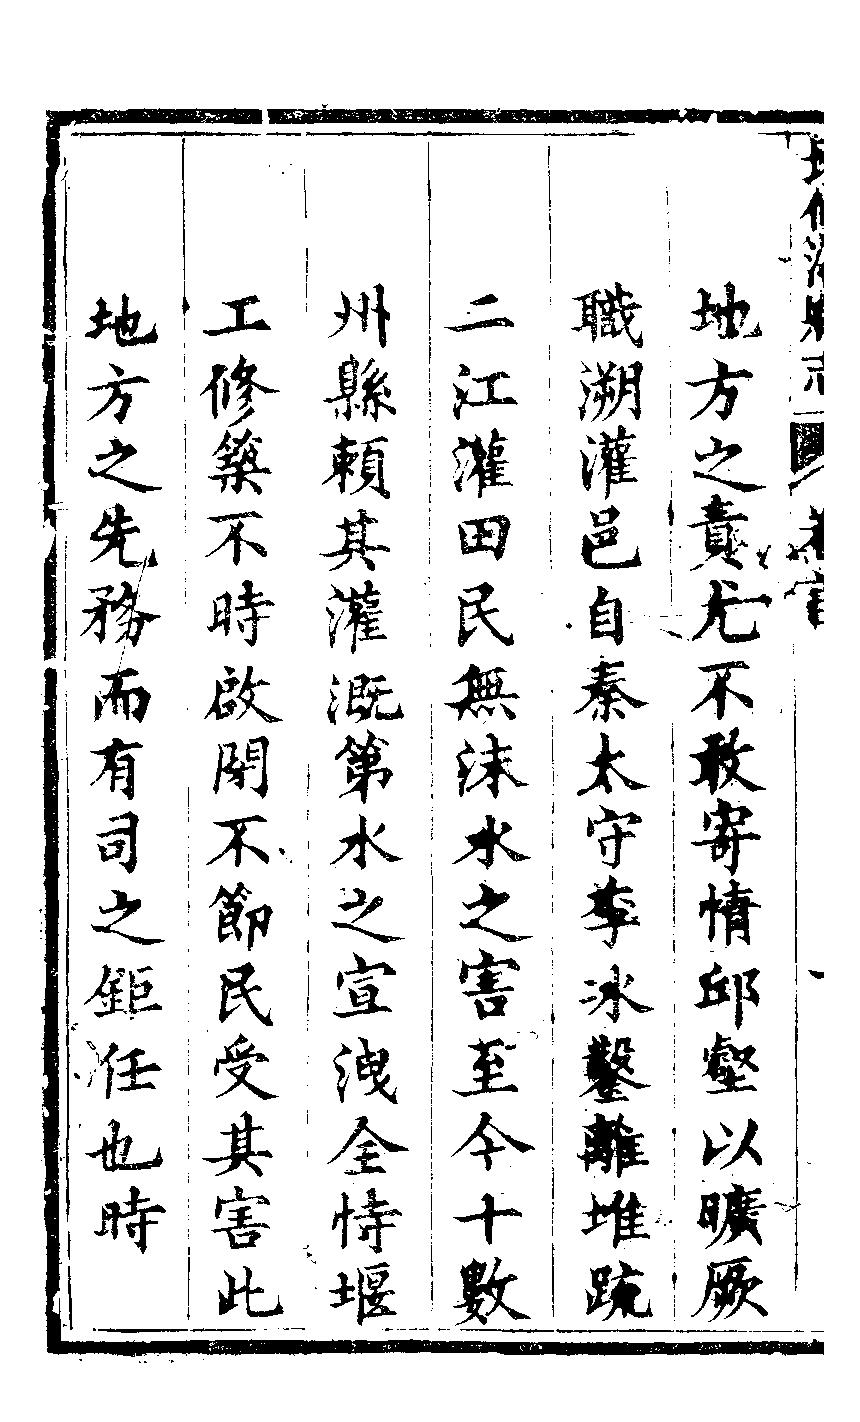 地方之責尤不敢寄情邱壑以曠厥
職溯灌邑自秦太守李冰鑿離堆疏
二江灌田民無沫水之害至今十數
州縣賴其灌溉第水之宣洩全恃堰
工修築不時啟閉不節民受其害此
地方之先務而有司之鉅任也時